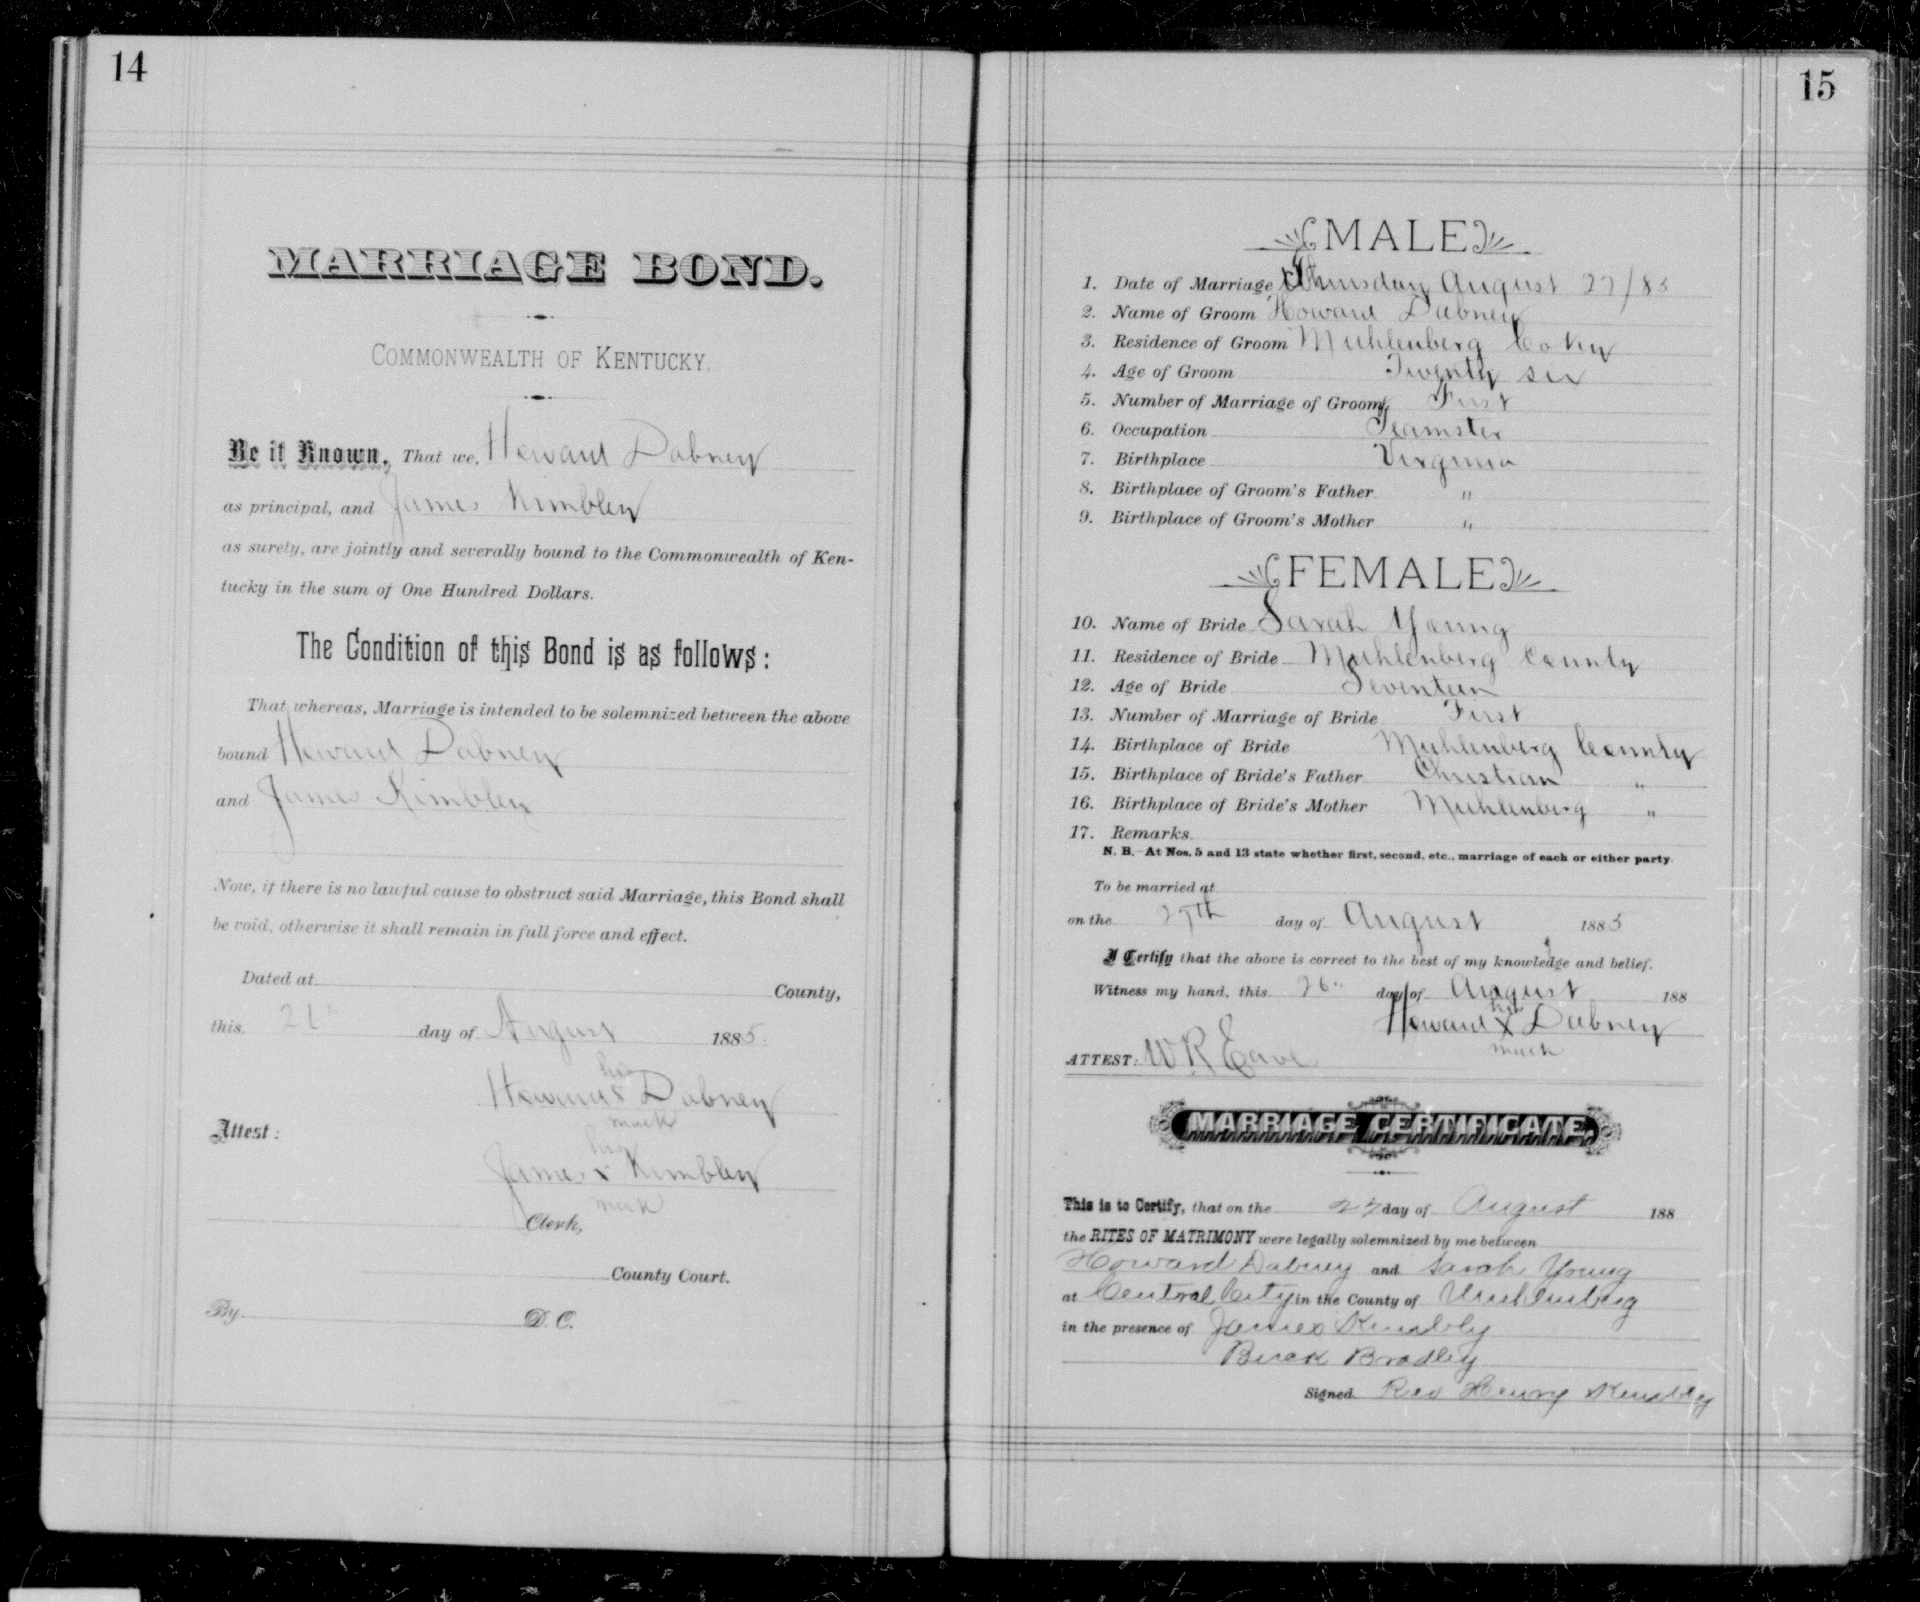 14
MARRIAGE BOND.
COMMONWEALTH OF KENTUCKY.
Be it Known, That we, Howard Dabney
as principal, and James Kimbley
as surety, are jointly and severally bound to the Commonwealth of Ken-
tucky in the sum of One Hundred Dollars.
The Condition of this Bond is as follows:
That whereas, Marriage is intended to be solemnized between the above
bound Howard Dabney
and James Kimbley
Now, if there is no lawful cause to obstruct said Marriage, this Bond shall
be void, otherwise it shall remain in full force and effect.
Dated at County,
this day of August 1885.
his
Howard x Dabney
mark
Attest:
his
James x Kimbley
mark
Clerk,
County Court.
By D. C.
15
MALE
1. Date of Marriage Thursday August 27/85
2. Name of Groom Howard Dabney
3. Residence of Groom Muhlenberg Co Ky
4. Age of Groom Twenty six
5. Number of Marriage of Groom First
6. Occupation Teamster
7. Birthplace Virginia
8. Birthplace of Groom's Father "
9. Birthplace of Groom's Mother "
FEMALE
10. Name of Bride Sarah Young
11. Residence of Bride Muhlenberg County
12. Age of Bride Seventeen
13. Number of Marriage of Bride First
14. Birthplace of Bride Muhlenberg County
15. Birthplace of Bride's Father Christian "
16. Birthplace of Bride's Mother Muhlenberg "
17. Remarks.
N. B.—At Nos. 5 and 13 state whether first, second, etc., marriage of each or either party.
To be married at
on the 27th day of August 1885
I Certify that the above is correct to the best of my knowledge and belief.
Witness my hand, this 26" day of August 188
his
Howard X Dabney
mark
ATTEST: W R Eave
MARRIAGE CERTIFICATE.
This is to Certify, that on the 27 day of August 188
the RITES OF MATRIMONY were legally solemnized by me between
Howard Dabney and Sarah Young
at Central City in the County of Muhlenberg
in the presence of James Kimbley
Buck Bradley
Signed. Rev Henry Kimbley